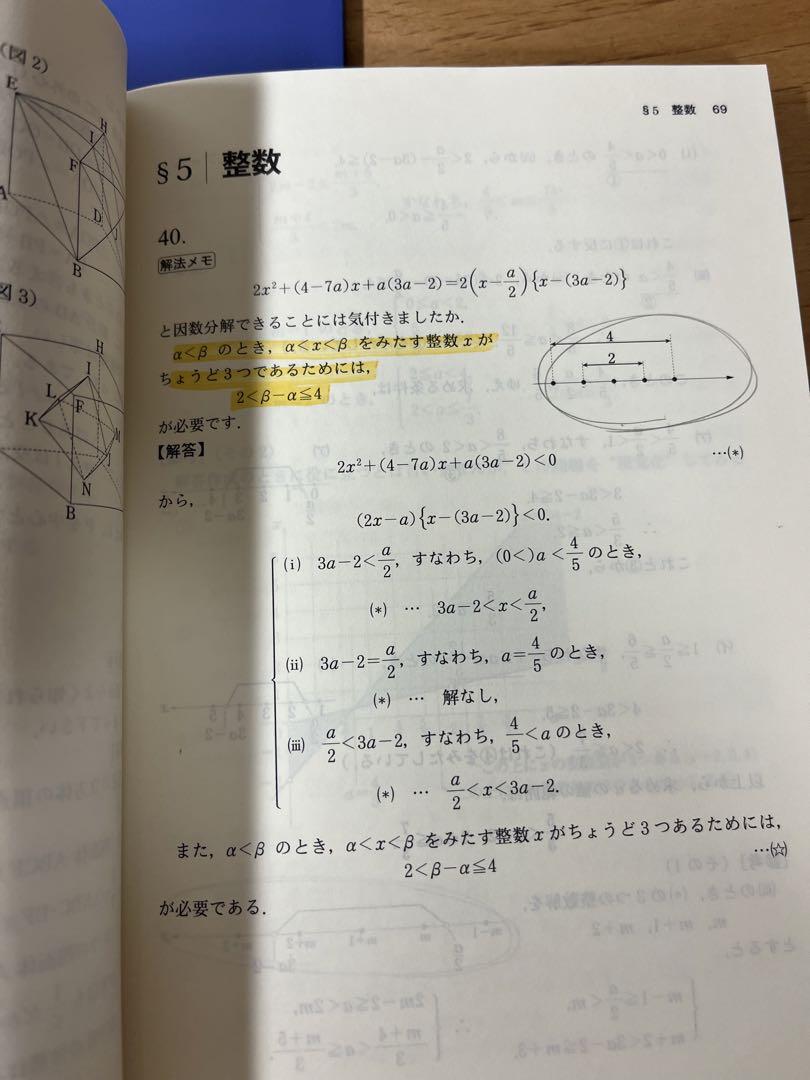 (図2)
E
H
I
F
A
D
J
B
図3)
H
I
L
F
K
M
J
N
B
§5 整数 69
§5 整数
40.
解法メモ
2x²+(4−7a)x+a(3a−2)=2(x−a/2){x−(3a−2)}
と因数分解できることには気付きましたか.
α<β のとき, α<x<β をみたす整数 x が
ちょうど3つであるためには,
2<β−α≦4
が必要です.
4
2
【解答】
2x²+(4−7a)x+a(3a−2)<0 …(*)
から,
(2x−a){x−(3a−2)}<0.
(i) 3a−2<a/2, すなわち, (0<)a<4/5 のとき,
(*) … 3a−2<x<a/2,
(ii) 3a−2=a/2, すなわち, a=4/5 のとき,
(*) … 解なし,
(iii) a/2<3a−2, すなわち, 4/5<a のとき,
(*) … a/2<x<3a−2.
また, α<β のとき, α<x<β をみたす整数 x がちょうど3つあるためには,
2<β−α≦4 …(☆)
が必要である.